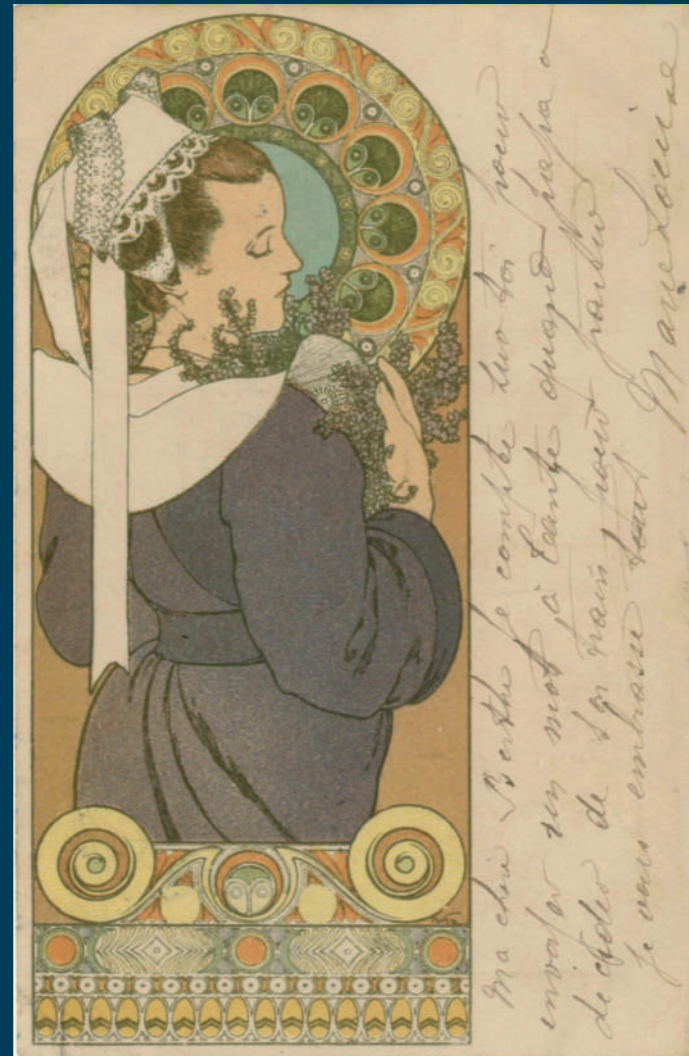 Ma chère Berthe je compte sur toi pour
envoyer un mot à tante quand papa a
de de son train pour partir
je vous embrasse tous
Marie Louise